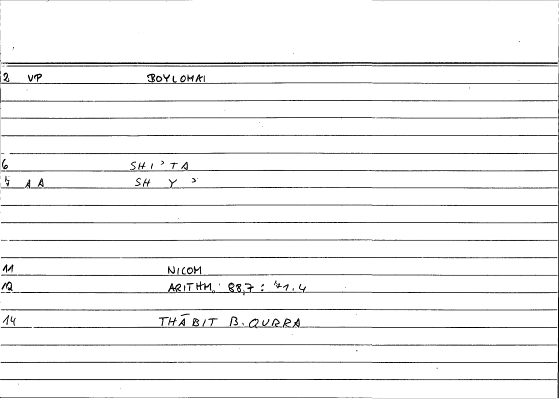 2 VP BOYLOMAI
6 SHI'TA
7 AA SH Y '
11 NICOM
12 ARITHM. 88,7 : 71.4
14 THĀBIT B. QURRA